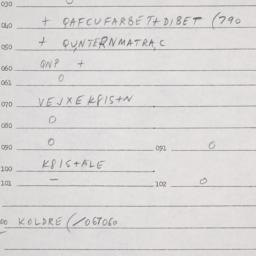 030 O
040 + QAFCUFARBET+DIBET (790
050 + QUNTERNMATRA,C
060 GNP +
061 O
070 VEJXEKPIS+N
080 O
090 O 091 O
100 KPIS+ALE
101 — 102 O
00 KOLDRE (/067060